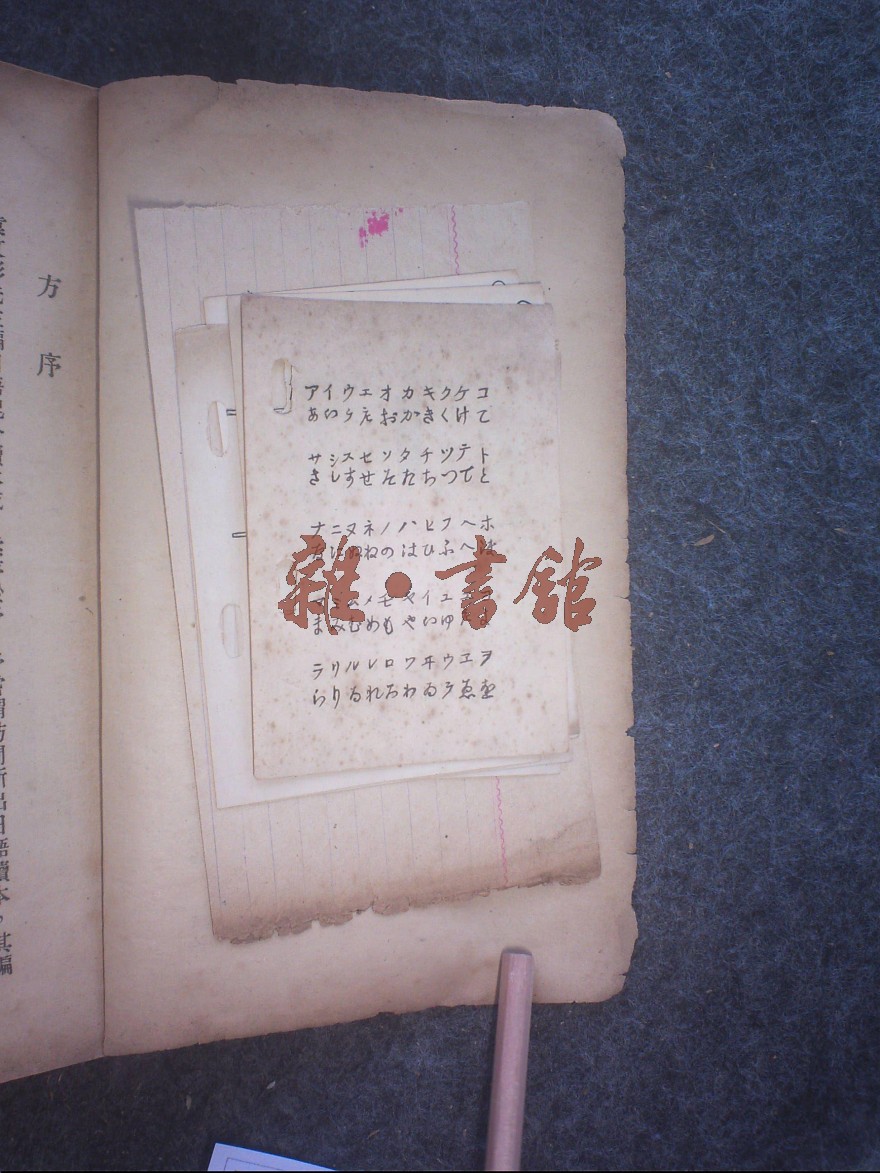 方序
アイウエオカキクケコ
あいうえおかきくけこ
サシスセソタチツテト
さしすせそたちつてと
ナニヌネノハヒフヘホ
なにぬねのはひふへほ
メモヤイユ
まみむめもやいゆ
ラリルレロワヰウヱヲ
らりるれろわゐうゑを
雜・書館